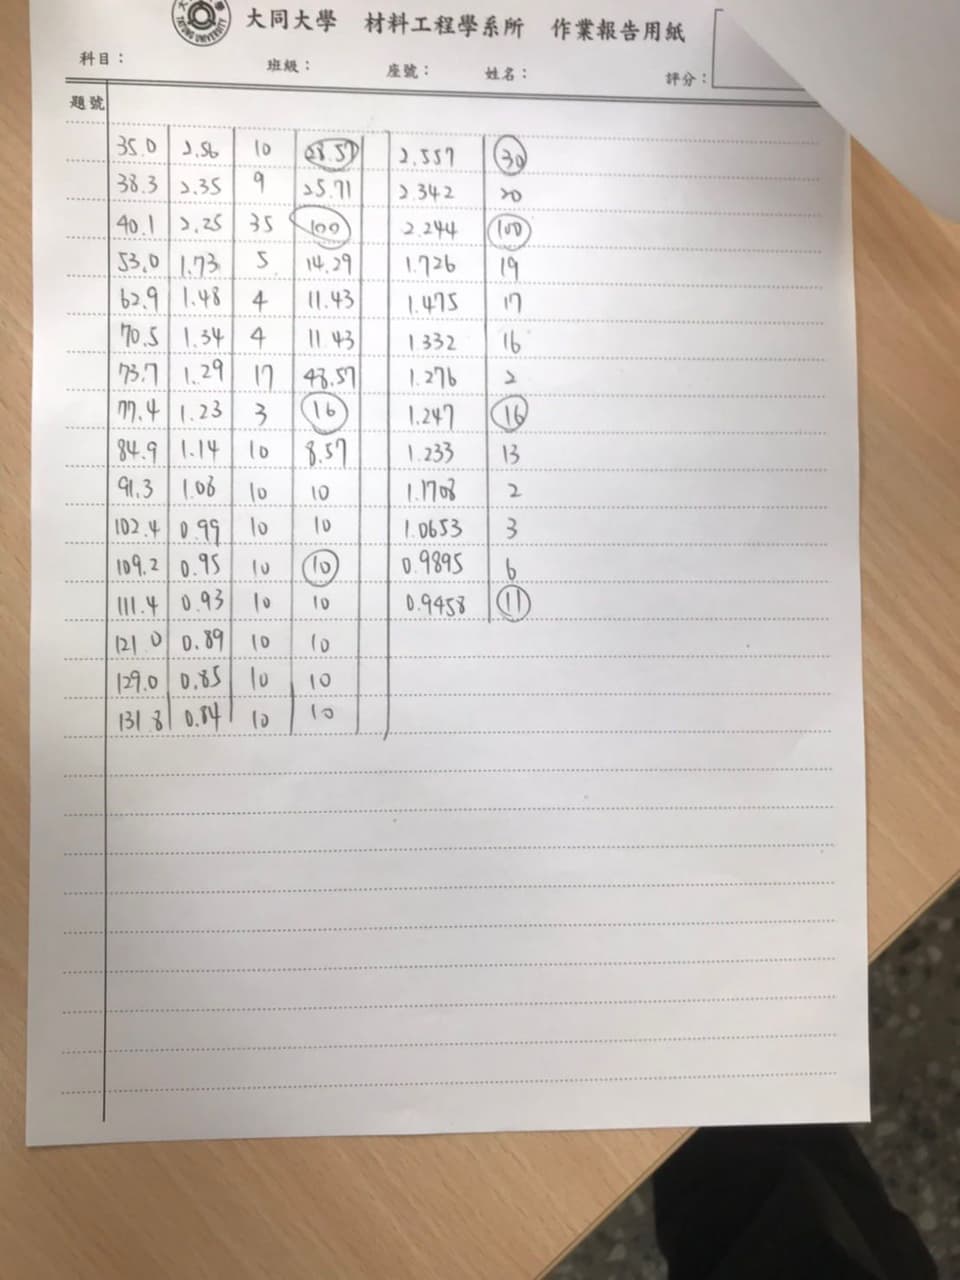 大同大學 材料工程學系所 作業報告用紙
科目： 班級： 座號： 姓名： 評分：
題號
35.0 2.56 10 28.57 2.557 30
38.3 2.35 9 25.71 2.342 20
40.1 2.25 35 100 2.244 100
53.0 1.73 5 14.29 1.726 19
62.9 1.48 4 11.43 1.475 17
70.5 1.34 4 11.43 1.332 16
73.7 1.29 17 48.57 1.276 2
77.4 1.23 3 16 1.247 16
84.9 1.14 10 8.57 1.233 13
91.3 1.08 10 10 1.1708 2
102.4 0.99 10 10 1.0653 3
109.2 0.95 10 10 0.9895 6
111.4 0.93 10 10 0.9458 11
121.0 0.89 10 10
129.0 0.85 10 10
131.8 0.84 10 10